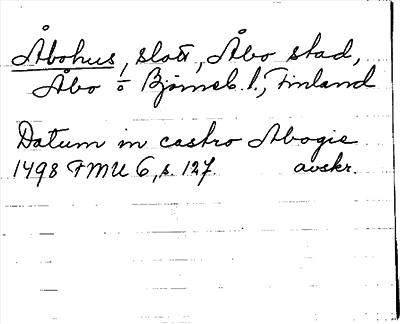 Åbohus, slott, Åbo stad,
Åbo o Björneb. l., Finland
Datum in castro Abogie
1498 FMU 6, s. 127. avskr.